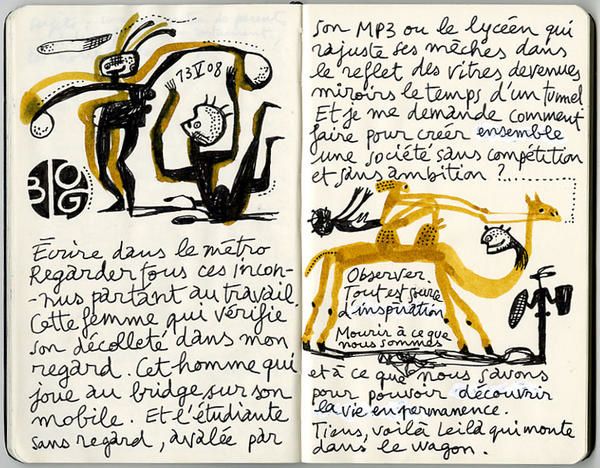 13 V 08
BLOG
Écrire dans le métro
Regarder tous ces incon-
-nus partant au travail.
Cette femme qui vérifie
son décolleté dans mon
regard. Cet homme qui
joue au bridge sur son
mobile. Et l'étudiante
sans regard, avalée par
son MP3 ou le lycéen qui
rajuste ses mèches dans
le reflet des vitres devenues
miroirs le temps d'un tunnel
Et je me demande comment
faire pour créer ensemble
une société sans compétition
et sans ambition ?
Observer.
Tout est source
d'inspiration
Mourir à ce que
nous sommes
et à ce que nous savons
pour pouvoir découvrir
la vie en permanence.
Tiens, voilà Leïla qui monte
dans le wagon.